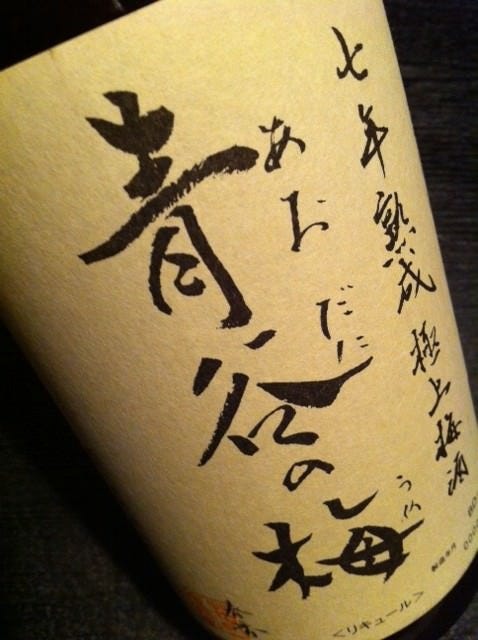 七年熟成 極上梅酒
あおだに うめ
青谷の梅
<リキュール>
製造年月